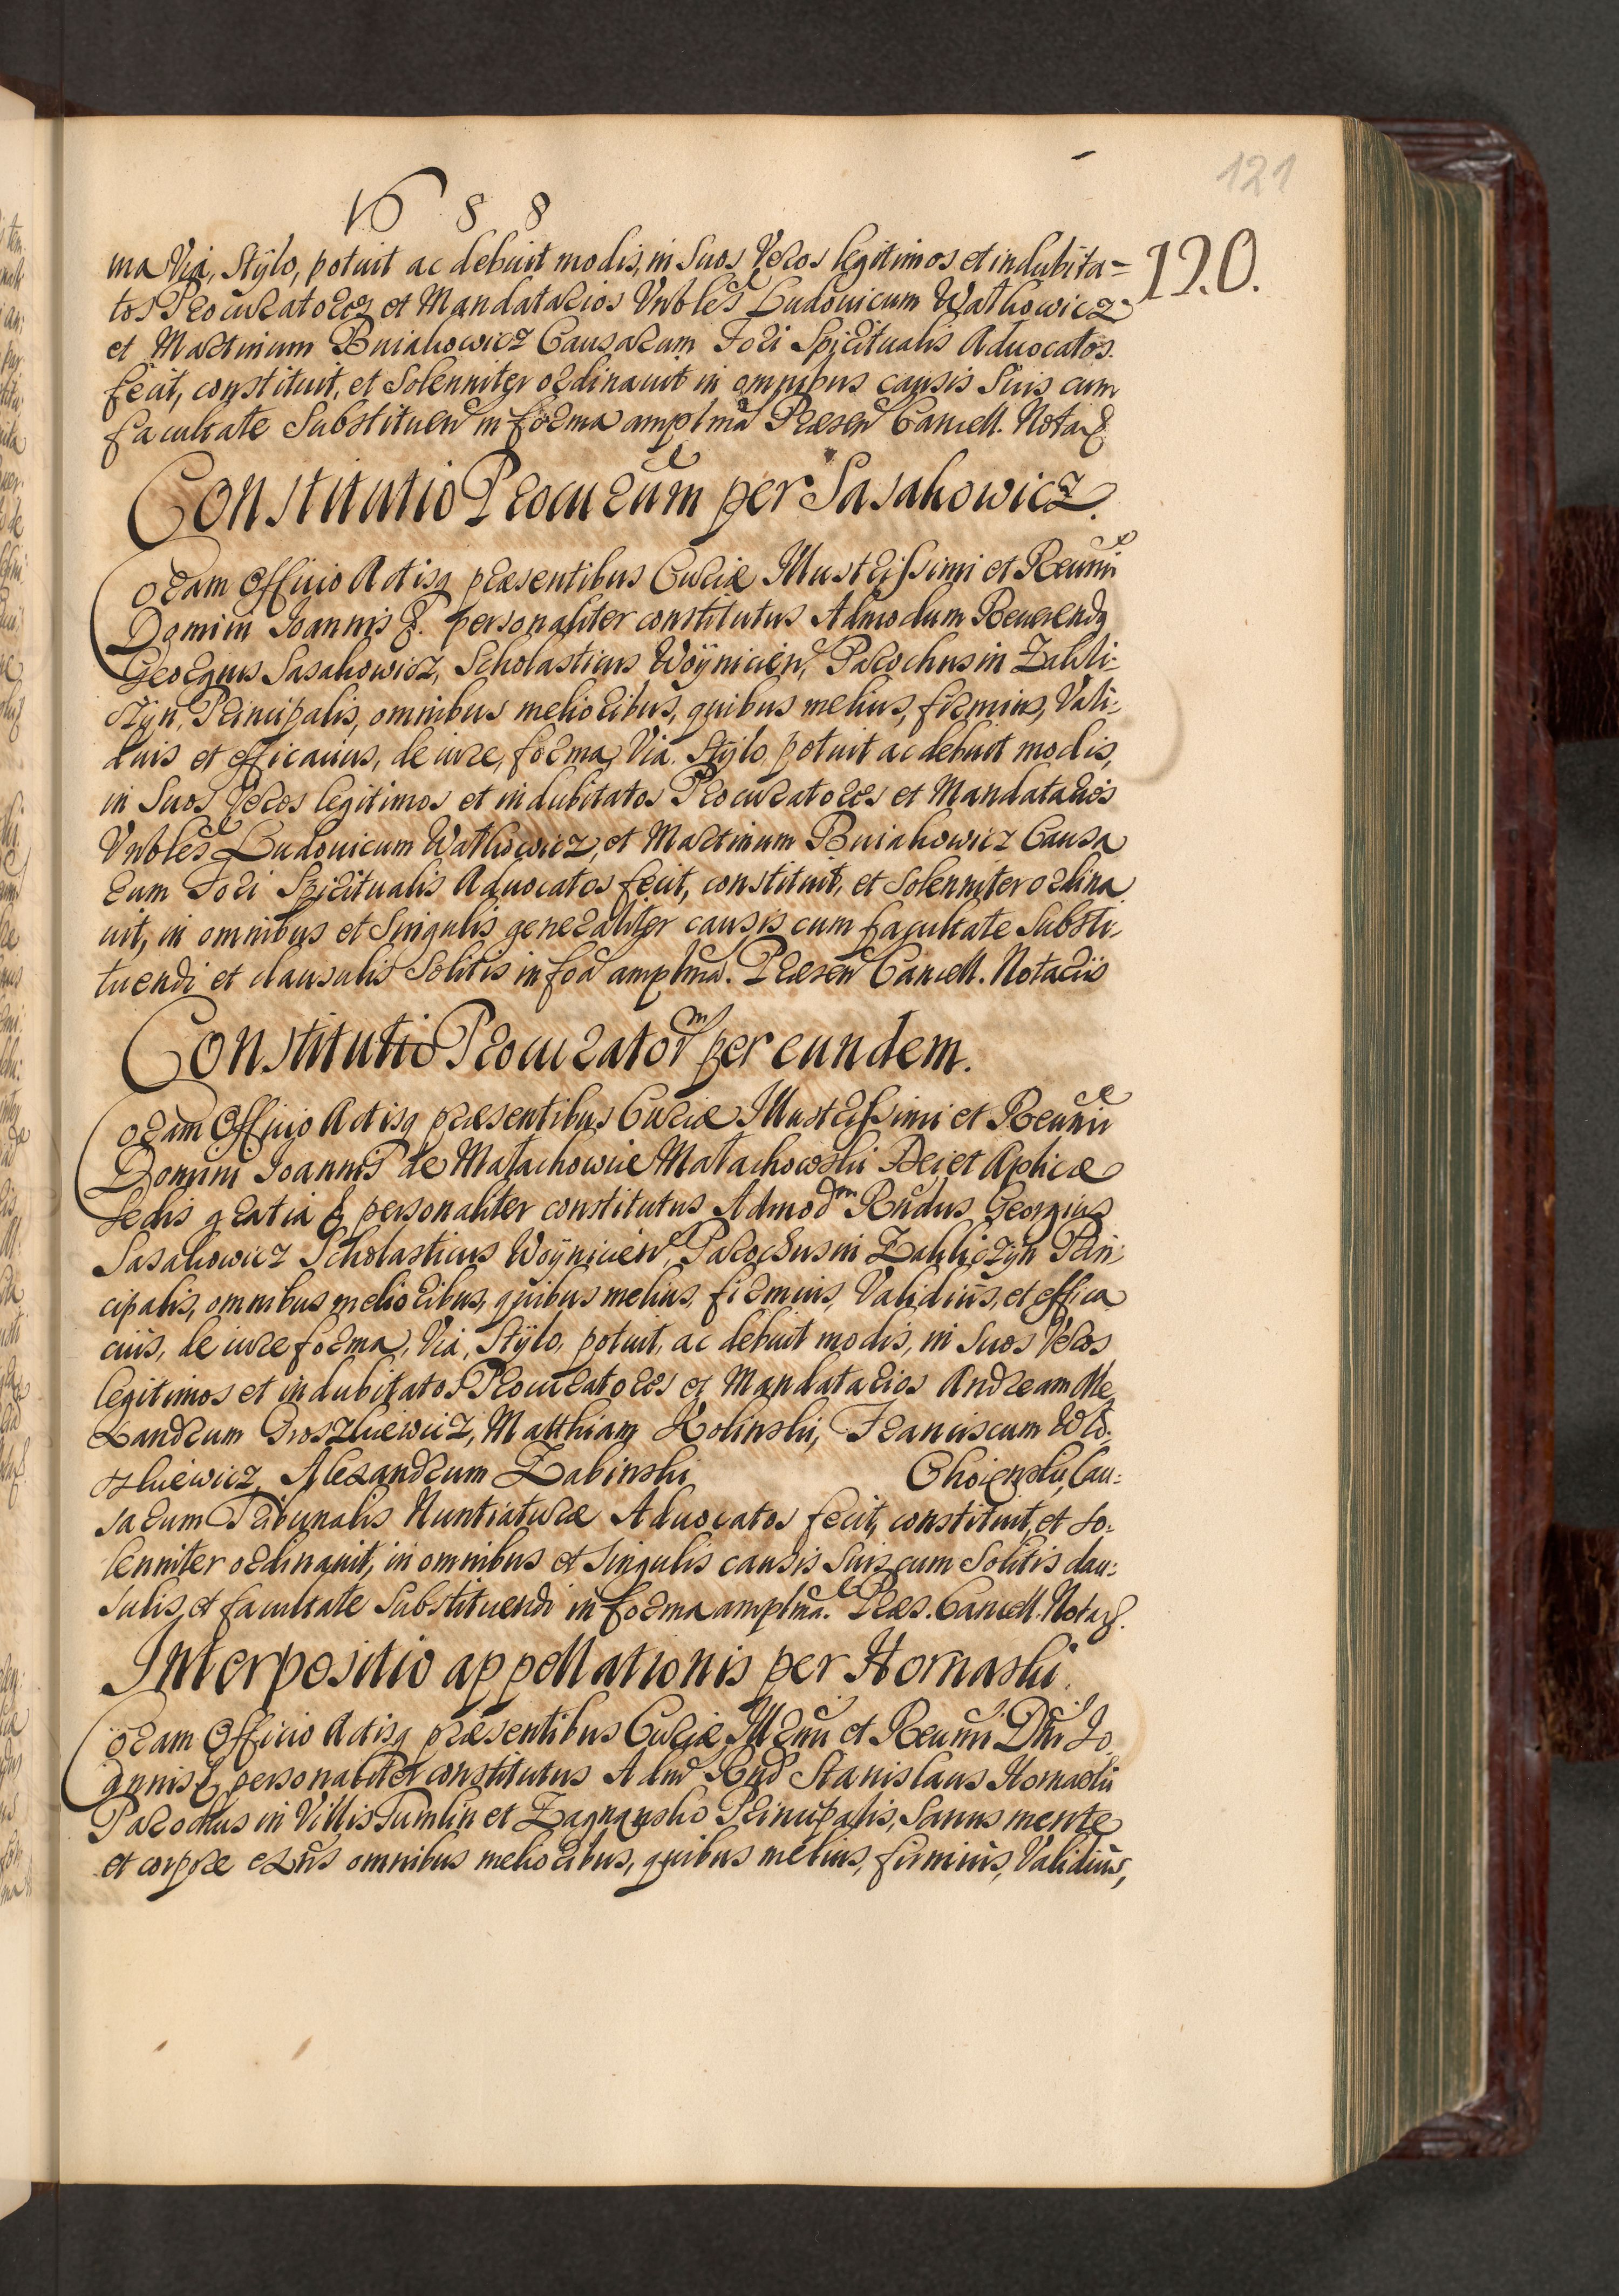 121
1688
120.
ma Via, Stÿlo, potuit ac debuit modis, in Suos Veros legitimos et indubita=
tos Procuratores et Mandatarios Vnbles Ludouicum Watkowicz
et Martinum Buiakowicz Causarum Fori Spiritualis Aduocatos.
fecit, constituit, et Solenniter ordinauit in omnibus causis Suis cum
facultate Substituen in forma amplma Præsen Cancell. Notar &
Constitutio Procurum per Sasakowicz.
Coram Officio Actisq præsentibus Curiæ Illustrissimi et Reumi
Domini Joannis &. personaliter constitutus Admodum Reuerends
Georgius Sasakowicz, Scholasticus Woÿnicien, Parochus in Zakli-
czÿn, Principalis, omnibus melioribus, quibus melius, firmius, Vali-
dius et efficacius, de iure, forma, Via. Stÿlo, potuit ac debuit modis,
in Suos Veros legitimos et indubitatos Procuratores et Mandatarios
Vnbles Ludouicum Watkowicz, et Martinum Buiakowicz Causa
rum Fori Spiritualis Aduocatos fecit, constituit, et Solenniter ordina
uit, in omnibus et Singulis generaliter causis cum facultate Substi-
tuendi et clausulis Solitis in for amplma. Præsen Cancell. Notariis
Constitutio Procuratorm per eundem.
Coram Officio Actisq præsentibus Curiæ Illustrissimi et Reumi
Domini Joannis de Małachowice Małachowski Dei et Aplicæ
Sedis gratia & personaliter constitutus Admodm Rndus Georgius
Sasakowicz Scholasticus Woÿnicien, Parochus in Zakliczÿn Prin-
cipalis, omnibus melioribus, quibus melius, firmius, Validius, et effica
cius, de iure forma, Via, Stÿlo, potuit, ac debuit modis, in Suos Veros
legitimos et indubitatos Procuratores et Mandatarios Andream Ale
xandrum Groszkiewicz, Matthiam Kolinski, Franciscum Wło-
szkiewicz, Alexandrum Zabinski Choienski, Cau-
sarum Tribunalis Nuntiaturæ Aduocatos fecit, constituit, et So-
lenniter ordinauit, in omnibus et Singulis causis Suis cum Solitis clau-
sulis et facultate Substituendi in forma amplma. Præs. Cancell. Notar &.
Interpositio appellationis per Hornaski.
Coram Officio Actisq præsentibus Curiæ Illrmi et Reumi Dni Jo
annis & personaliter constitutus Admd Rnd Stanislaus Hornaski
Parochus in Villis Tumlin et Zagnansko Principalis, Sanus mente
et corpore exns omnibus melioribus, quibus melius, firmius, Validius,